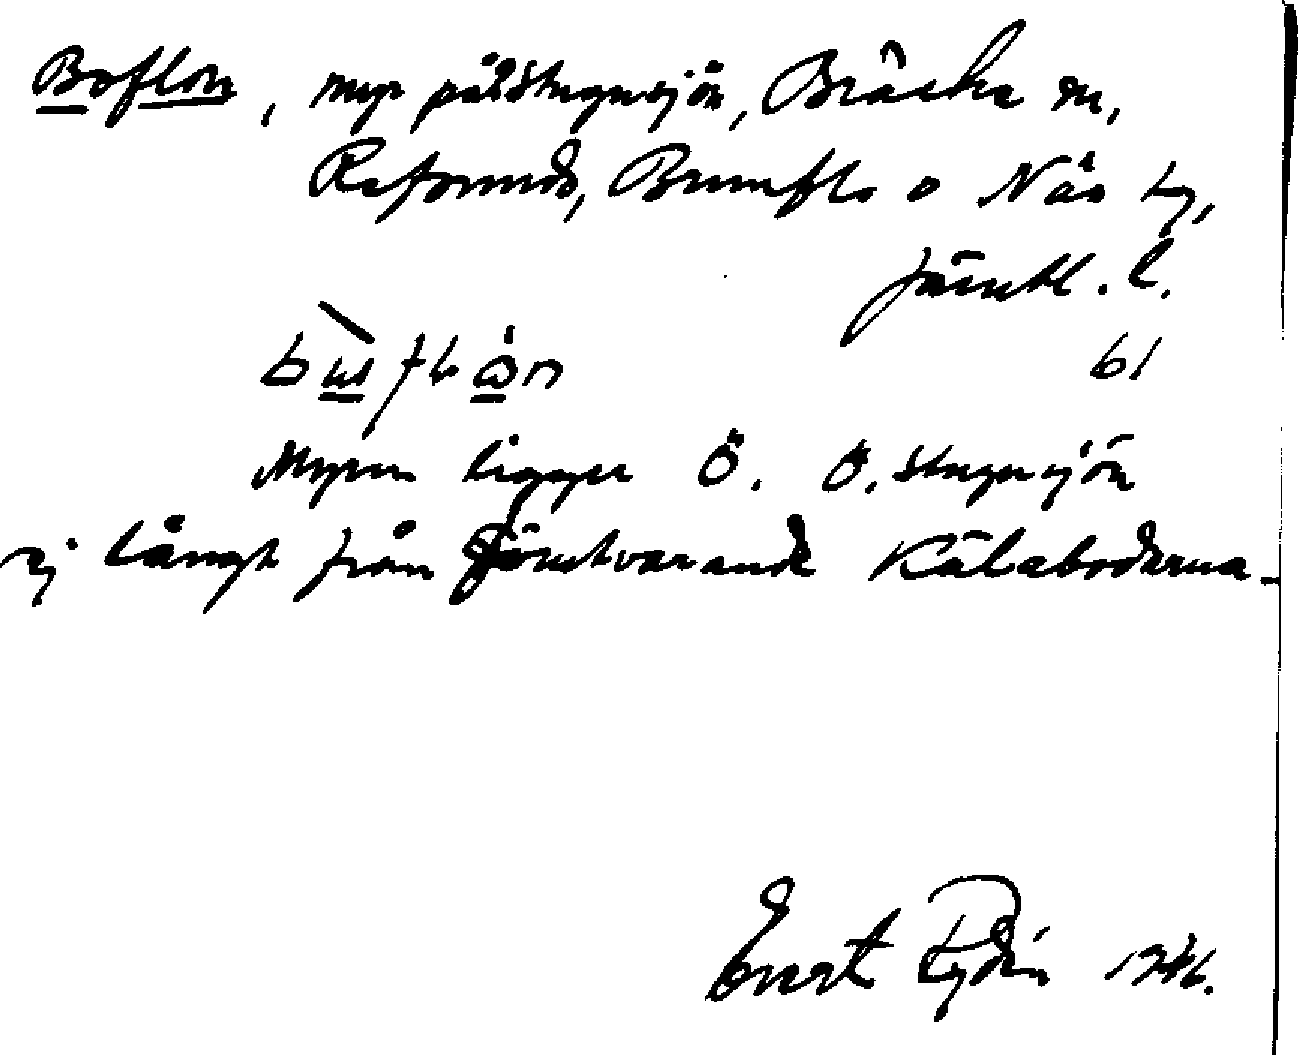 Boflon, myr på Stugusjön, Bräcke m,
Refsunds, Brunflo o Näs tg,
Jämtl. l.
61
Myren ligger Ö. Ö. Stugusjön
ej långt från försvarande Kälabodarna.
Evert Lydin 1946.